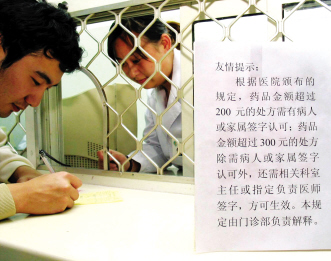 友情提示:
根据医院颁布的
规定，药品金额超过
200 元的处方需有病人
或家属签字认可；药品
金额超过 300 元的处方
除需病人或家属签字
认可外，还需相关科室
主任或指定负责医师
签字，方可生效。本规
定由门诊部负责解释。